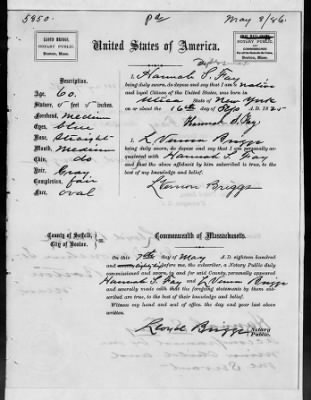 5950.
May 8/86
LLOYD BRIGGS,
NOTARY PUBLIC,
Boston, Mass.
NOTARY PUBLIC
Boston, Mass.
United States of America.
Description.
Age, 60.
Stature, 5 feet 5 inches.
Forehead, medium
Eyes, blue
Nose, straight
Mouth, medium
Chin, do
Hair, Gray
Complexion, fair
Face, oval
I, Hannah S. Fay
being duly sworn, do depose and say that I am a native
and loyal Citizen of the United States, was born in
Utica State of New York
on or about the 16th day of A.D. 1825
Hannah S. Fay
I, L. Vernon Briggs
being duly sworn, do depose and say that I am personally
acquainted with Hannah S. Fay
and that the above affidavit by him subscribed is true, to the
best of my knowledge and belief.
L Vernon Briggs
County of Suffolk, ss.
City of Boston.
Commonwealth of Massachusetts.
On this 7th day of May A.D. eighteen hundred
and eighty before me, the subscriber, a Notary Public duly
commissioned and sworn in and for said County, personally appeared
Hannah S. Fay and L Vernon Briggs
and severally made oath that the foregoing statements by them sub-
scribed are true, to the best of their knowledge and belief.
Witness my hand and seal of office the day and year last above
written.
Lloyd Briggs Notary
Public.